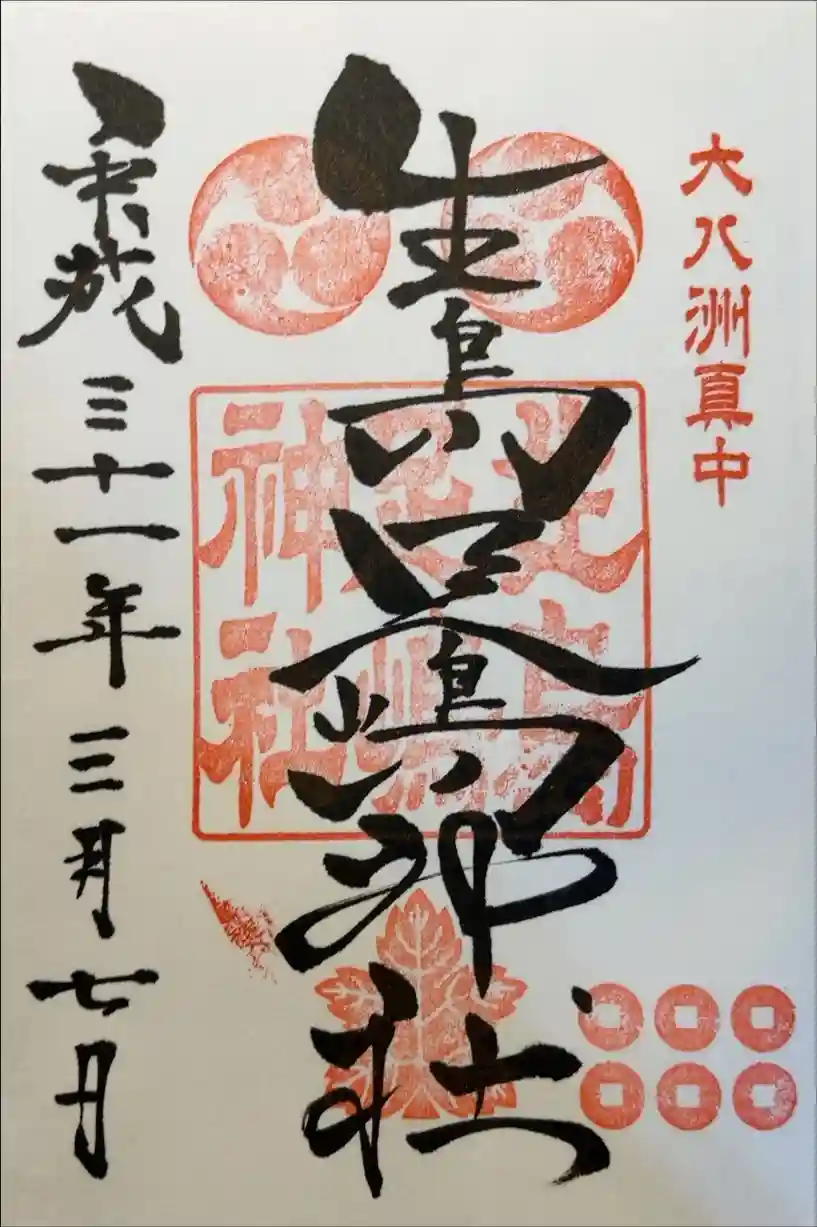 大八洲真中
生島足嶋神社
生島
足嶋
神社
平成三十一年三月七日